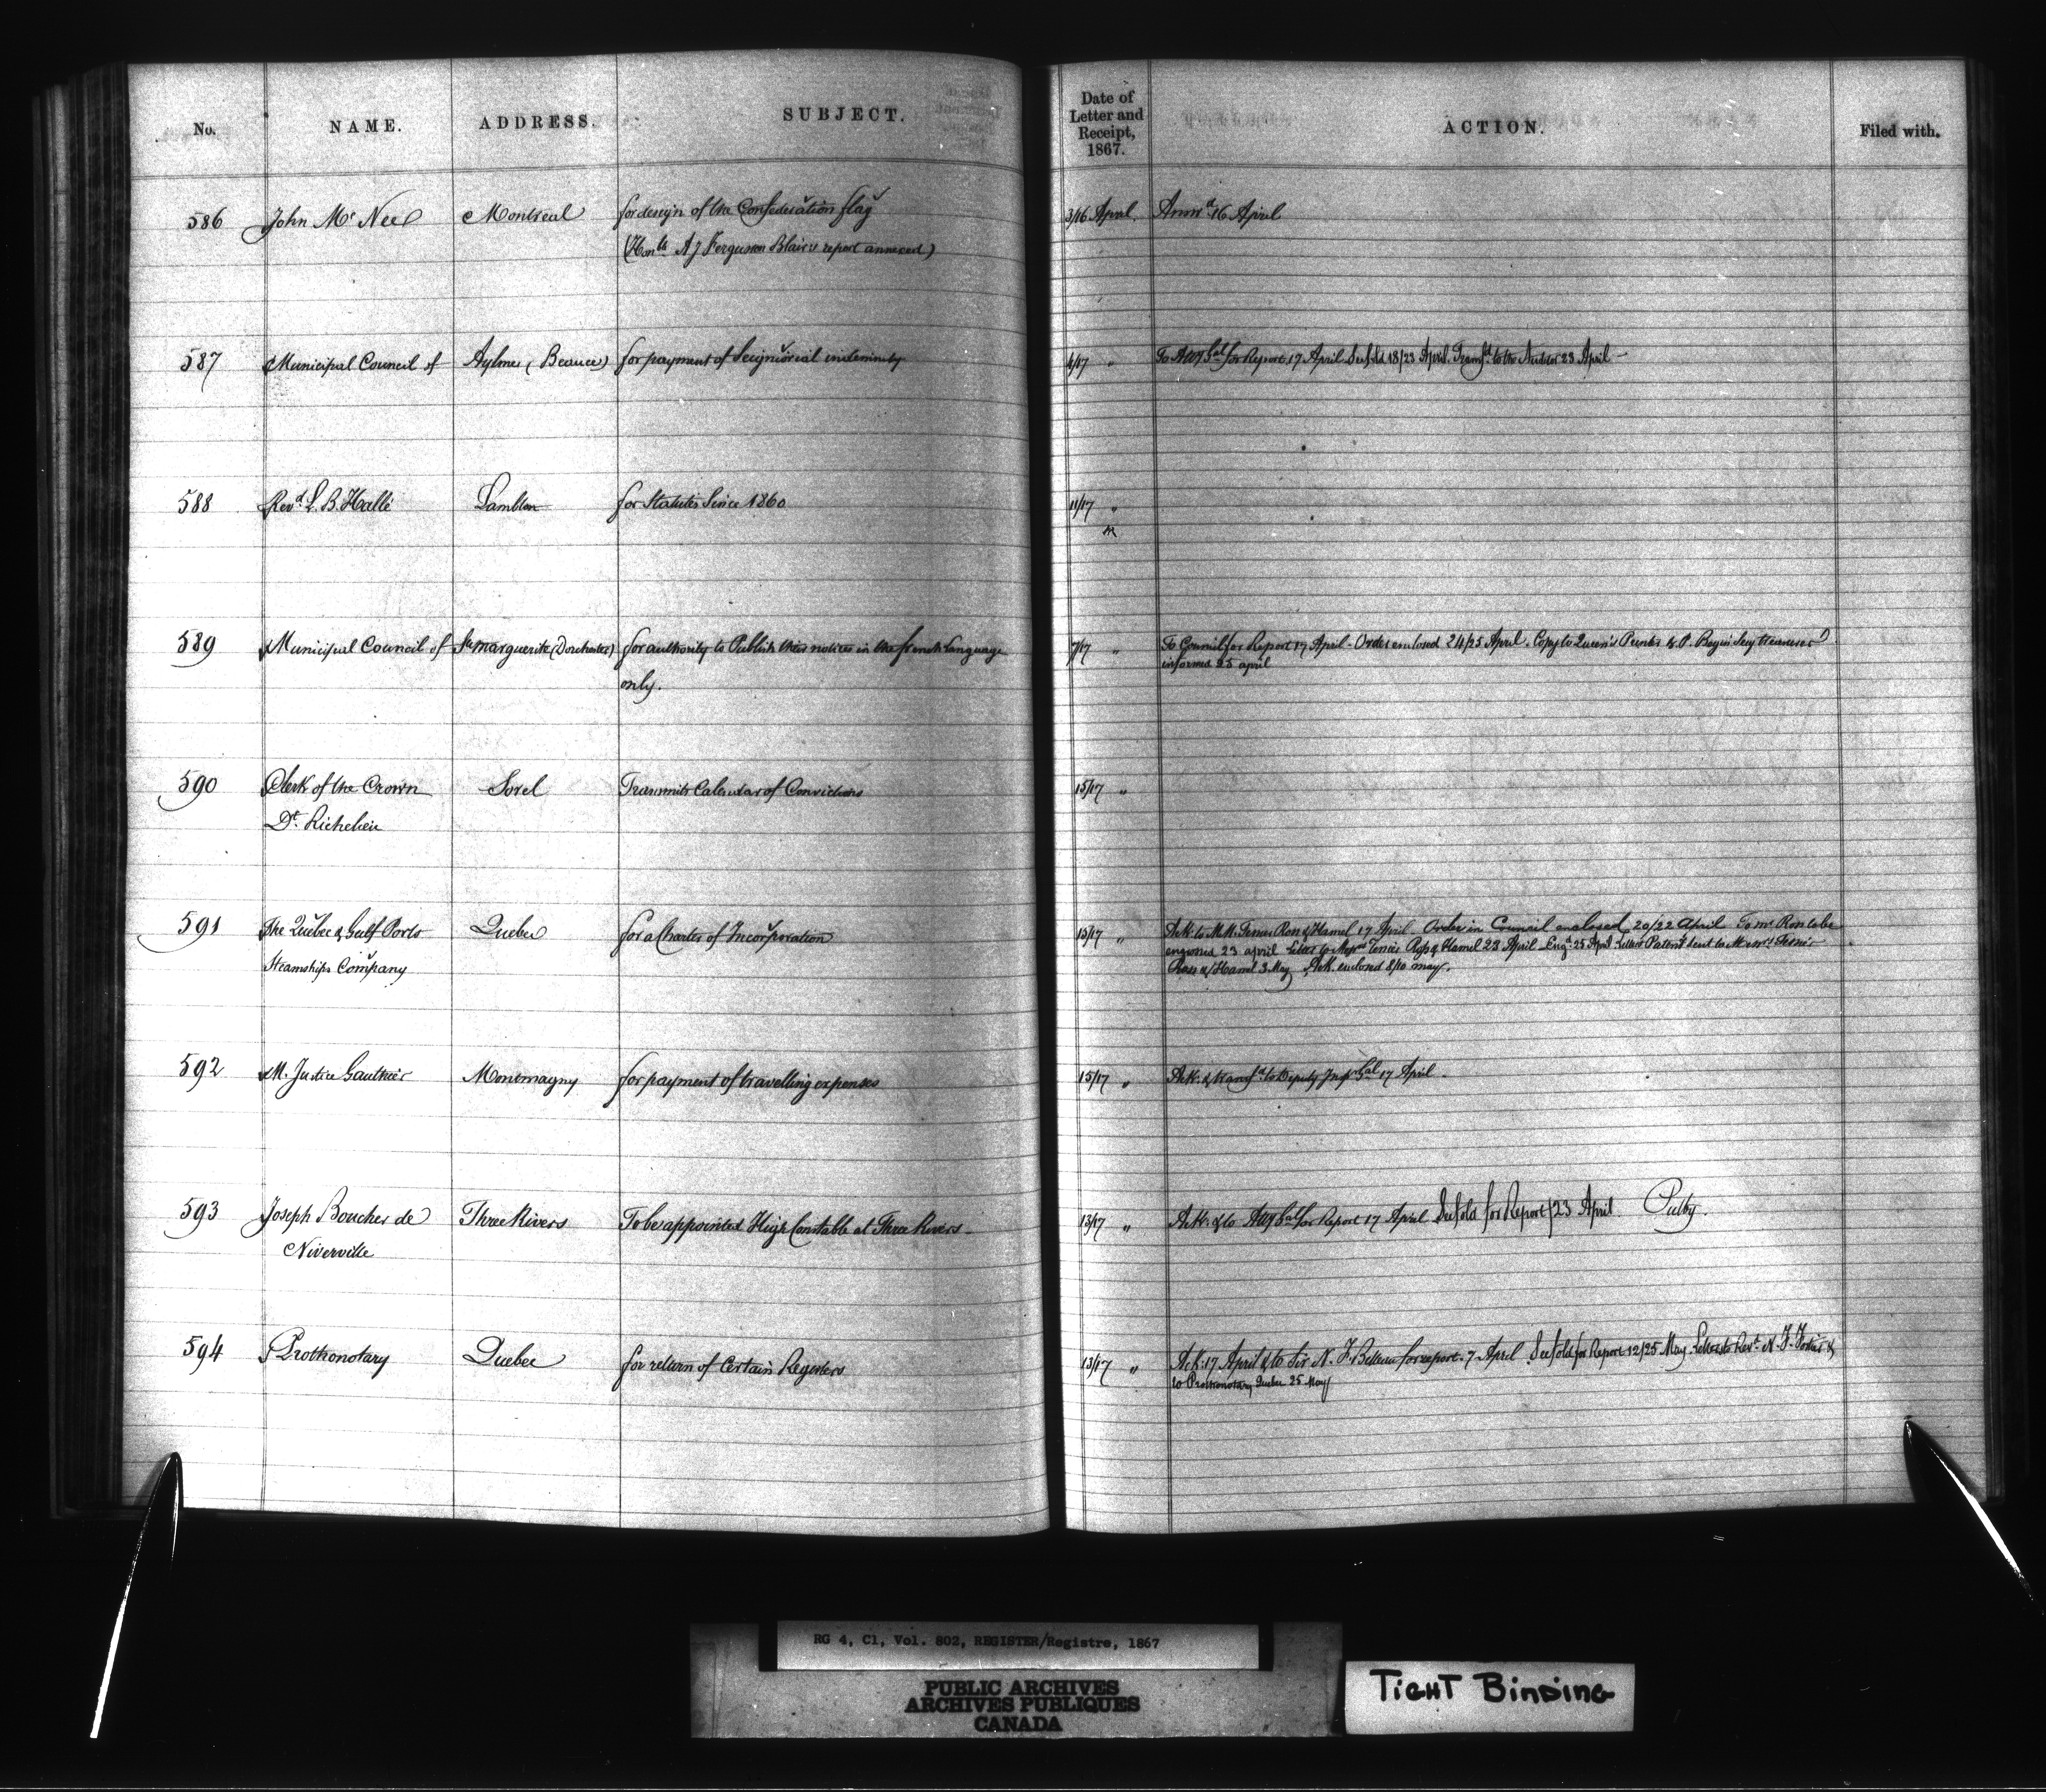 No. NAME. ADDRESS. SUBJECT. Date of Letter and Receipt, 1867. ACTION. Filed with.
586 John Mc Nee Montreal for design of the Confederation flag 3/16 April Answd 16 April
(Honble A J Ferguson Blair's report annexed)
587 Municipal Council of Aylmer (Beauce) for payment of Seigniorial indemnity 4/17 " To Atty Gal for Report 17 April See fold 18/23 April. Transfd to the Auditor 23 April
588 Revd L. B. Hallé Lambton for Statutes Since 1860 11/17 "
589 Municipal Council of Ste Marguerite (Dorchester) for authority to Publish their notices in the french Language 7/17 " To Council for Report 17 April - Order enclosed 24/25 April. Copy to Queen's Printer & P. Secy treasurer
only. informed 25 april
590 Clerk of the Crown Sorel Transmits Calendar of Convictions 15/17 "
Dt. Richelieu
591 The Quebec & Gulf Ports Quebec for a Charter of Incorporation 15/17 " Ack. to M.M. Ross & Hamel 17 April Order in Council enclosed 20/22 april To mr to be
Steamships Company engrossed 23 april Letter to Ross & Hamel 23 April Engd 25 April Letters Patent sent to Messrs
Ross & Hamel 3 May Ack. enclosed 8/10 may.
592 M. Justice Gauthier Montmagny for payment of travelling expenses 15/17 " Ack. & transfd to Deputy Inspr Gal 17 April
593 Joseph Boucher de Three Rivers To be appointed High Constable at Three Rivers 13/17 " Ack. & to Atty Gal for Report 17 April See fold for Report/23 April
Niverville
594 Prothonotary Quebec for return of Certain Registers 13/17 " Ack. 17 April & to Sir N. F. Belleau for report. 7 April See fold for Report 12/25 May. Letters to Revd N. F. Fortier &
to Prothonotary Quebec 25 May
RG 4, C1, Vol. 802, REGISTER/Registre, 1867
PUBLIC ARCHIVES
ARCHIVES PUBLIQUES
CANADA
TIGHT BINDING